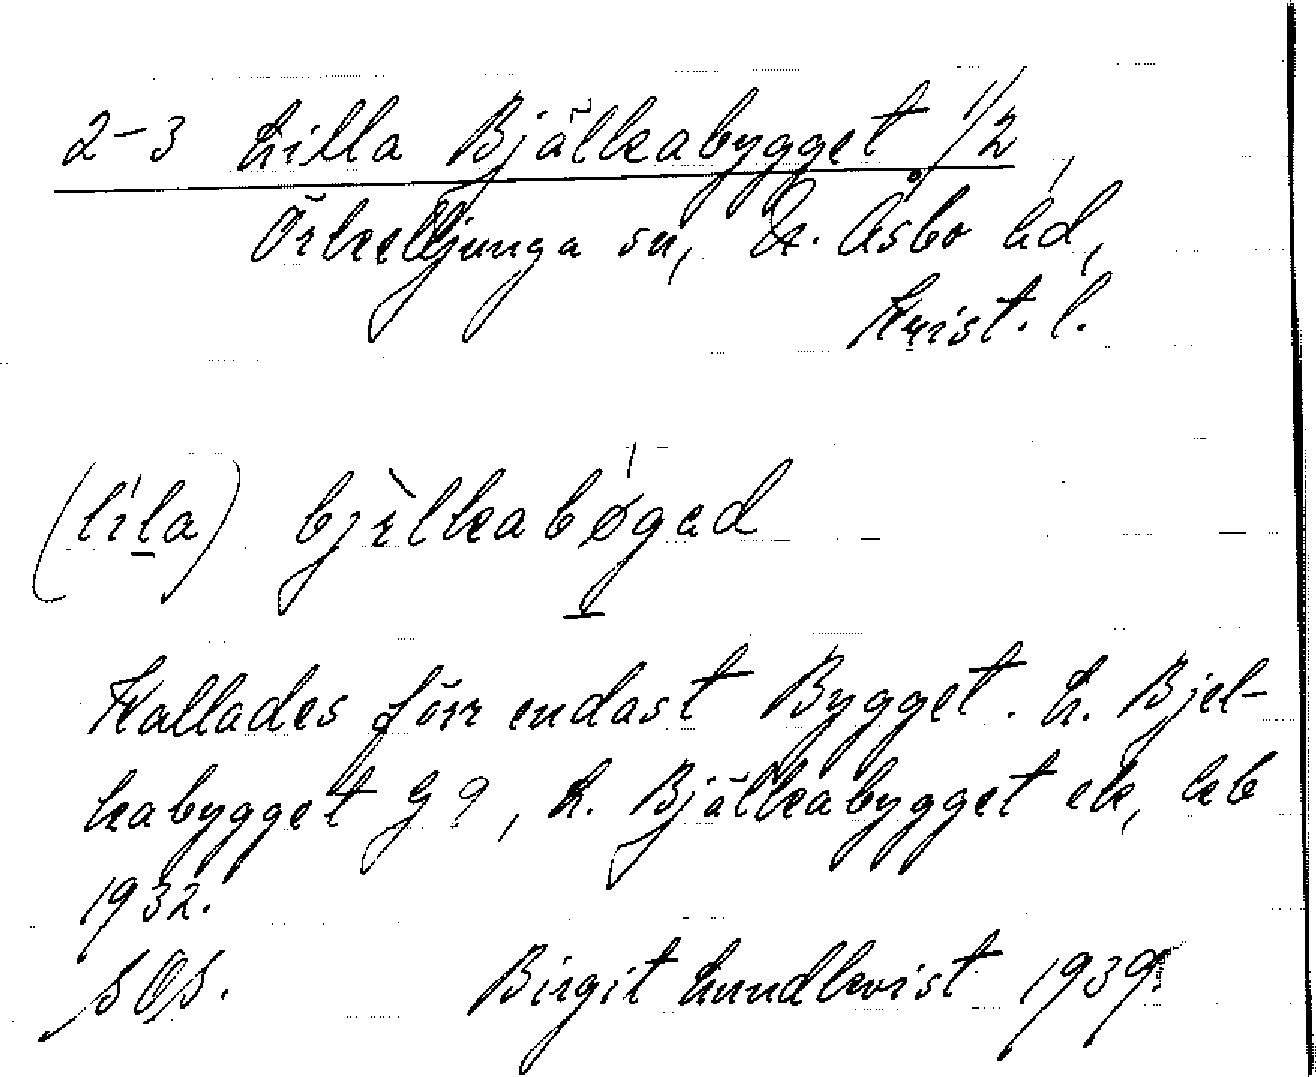 2-3 Lilla Bjälkabygget 1/2,
Örkelljunga sn, N. Åsbo hd,
Krist. l.
(lìla) bjèlkabøgad
Kallades förr endast Bygget. L. Bjel-
kabygget G 9, L. Bjälkabygget ek, kb
1932.
SOS. Birgit Lundkvist 1939.